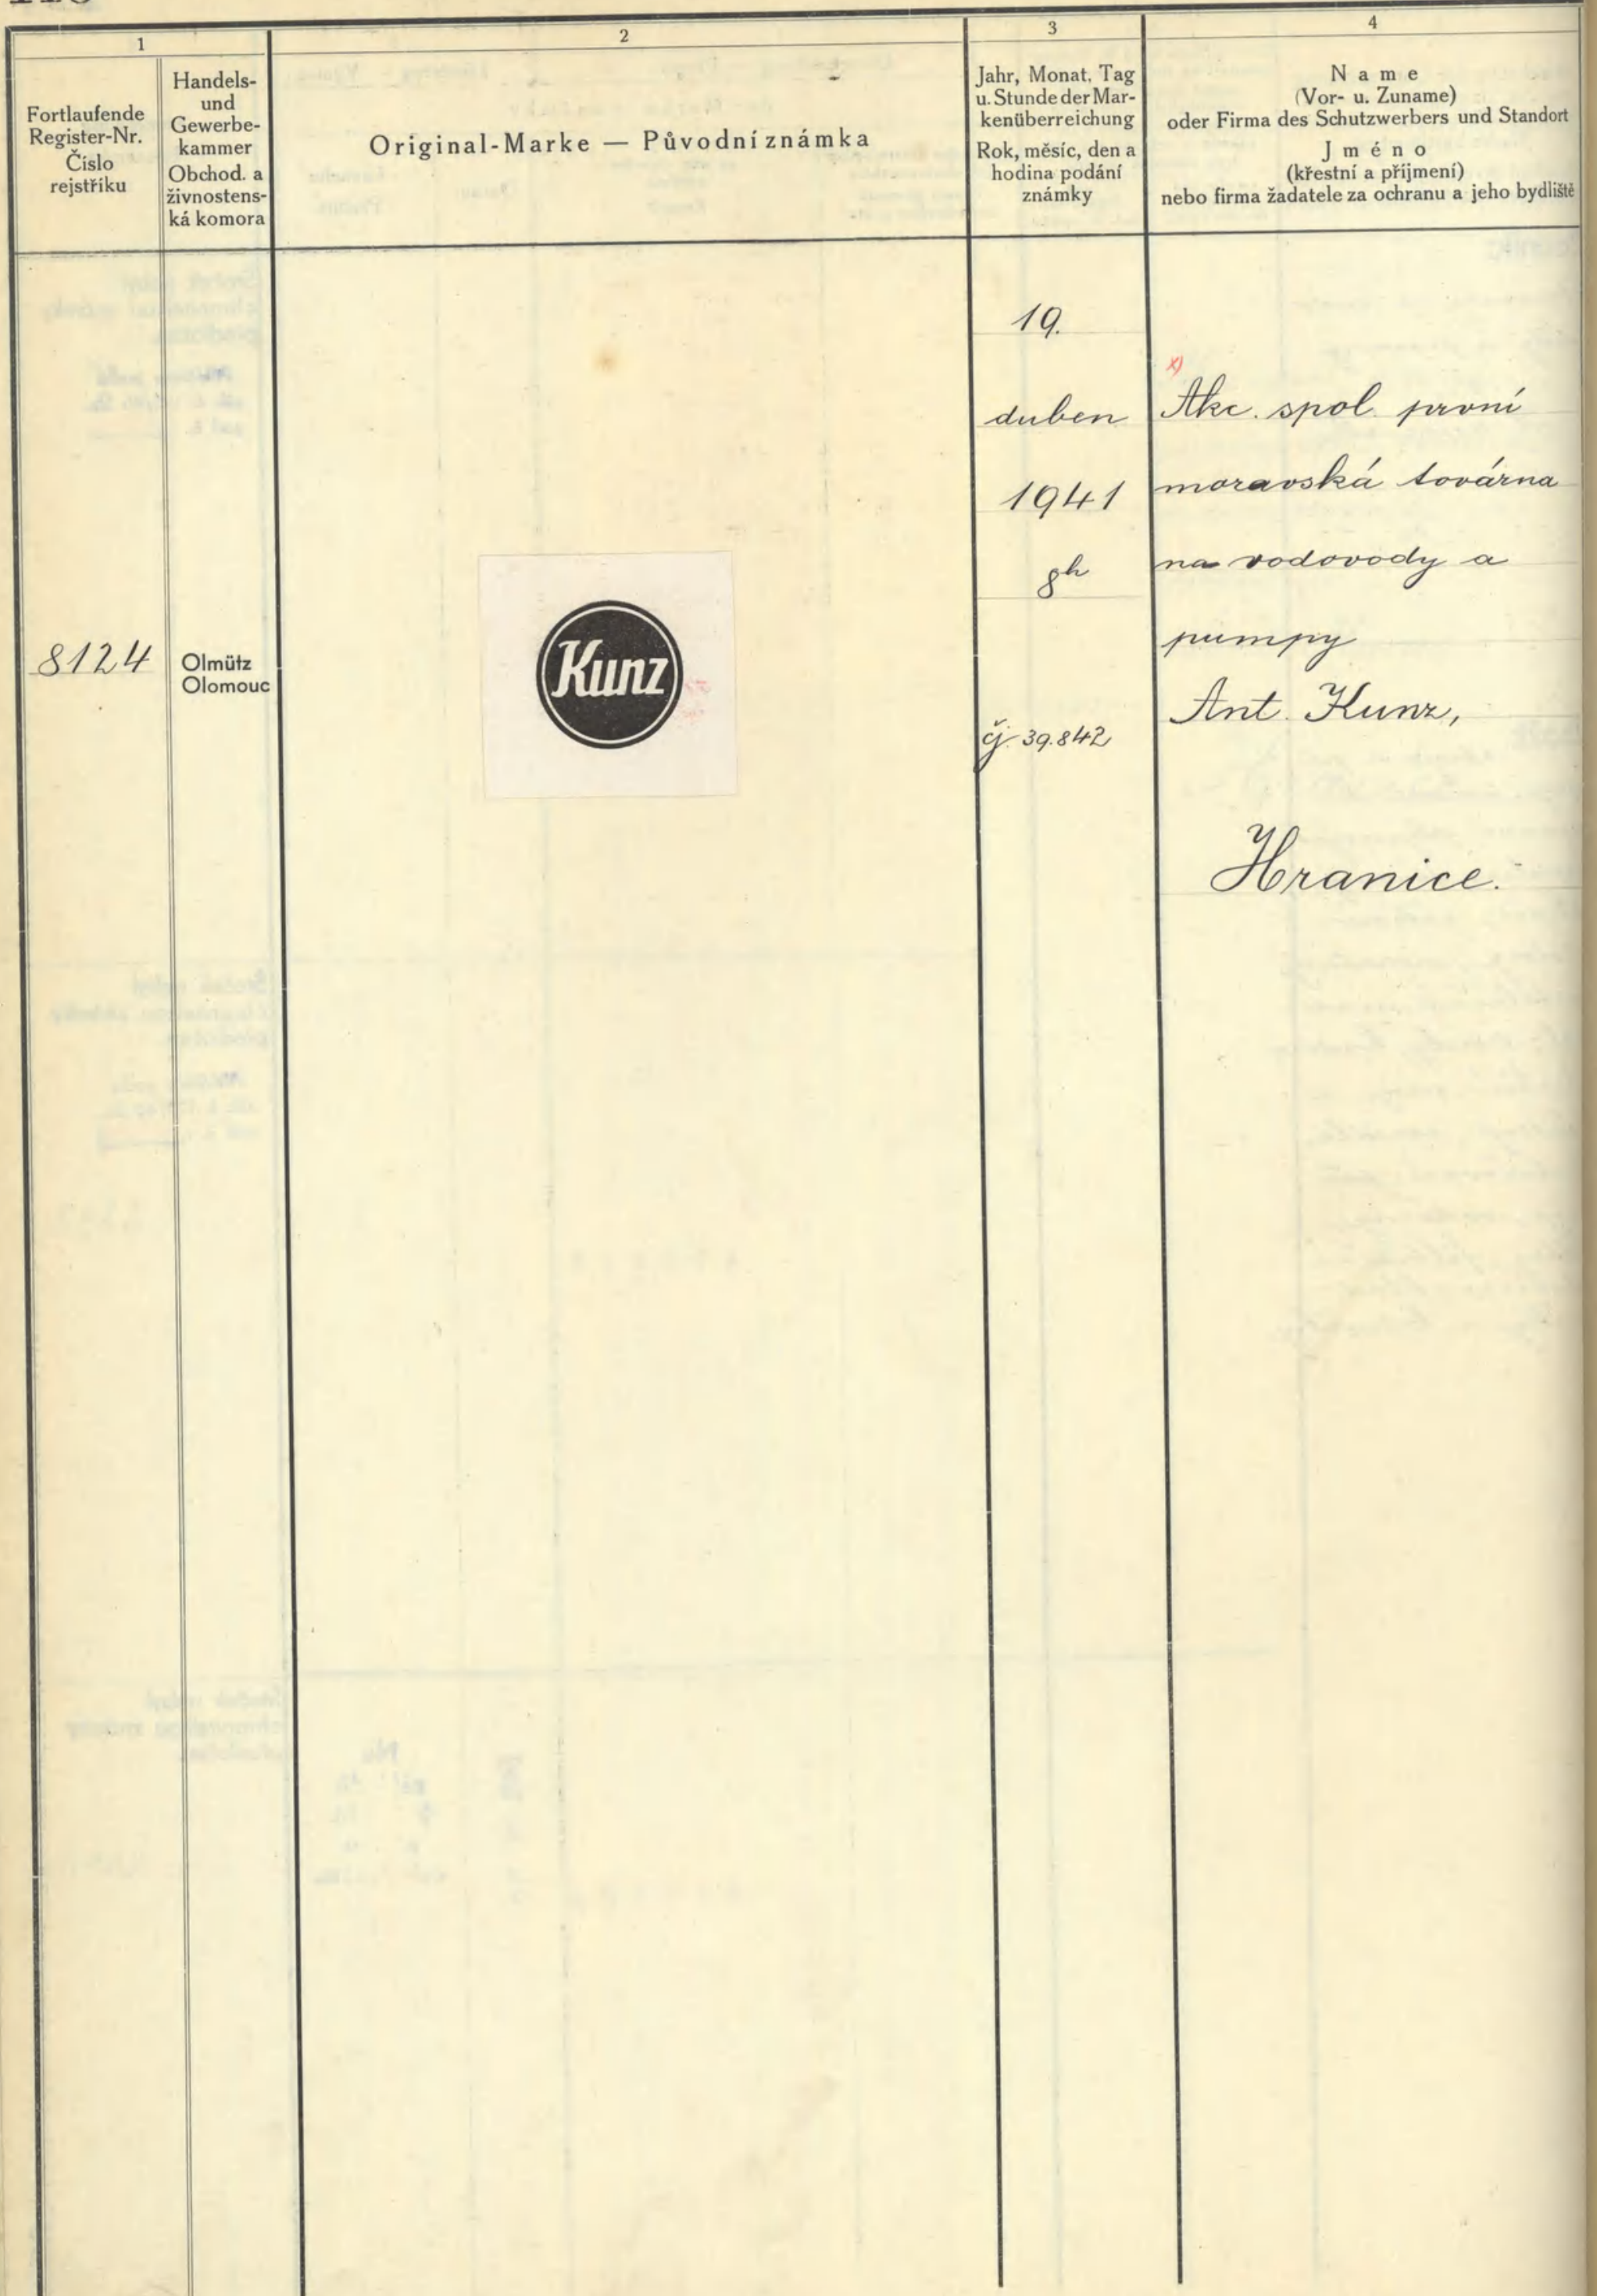 1
2
3
4
Fortlaufende
Register-Nr.
Číslo
rejstříku
Handels-
und
Gewerbe-
kammer
Obchod. a
živnostens-
ká komora
Original-Marke — Původní známka
Jahr, Monat, Tag
u. Stunde der Mar-
kenüberreichung
Rok, měsíc, den a
hodina podání
známky
Name
(Vor- u. Zuname)
oder Firma des Schutzwerbers und Standort
Jméno
(křestní a přijmení)
nebo firma žadatele za ochranu a jeho bydliště
8124
Olmütz
Olomouc
Kunz
19.
duben
1941
8h
čj. 39.842
x)
Akc. spol. první
moravská továrna
na vodovody a
pumpy
Ant. Kunz,
Hranice.